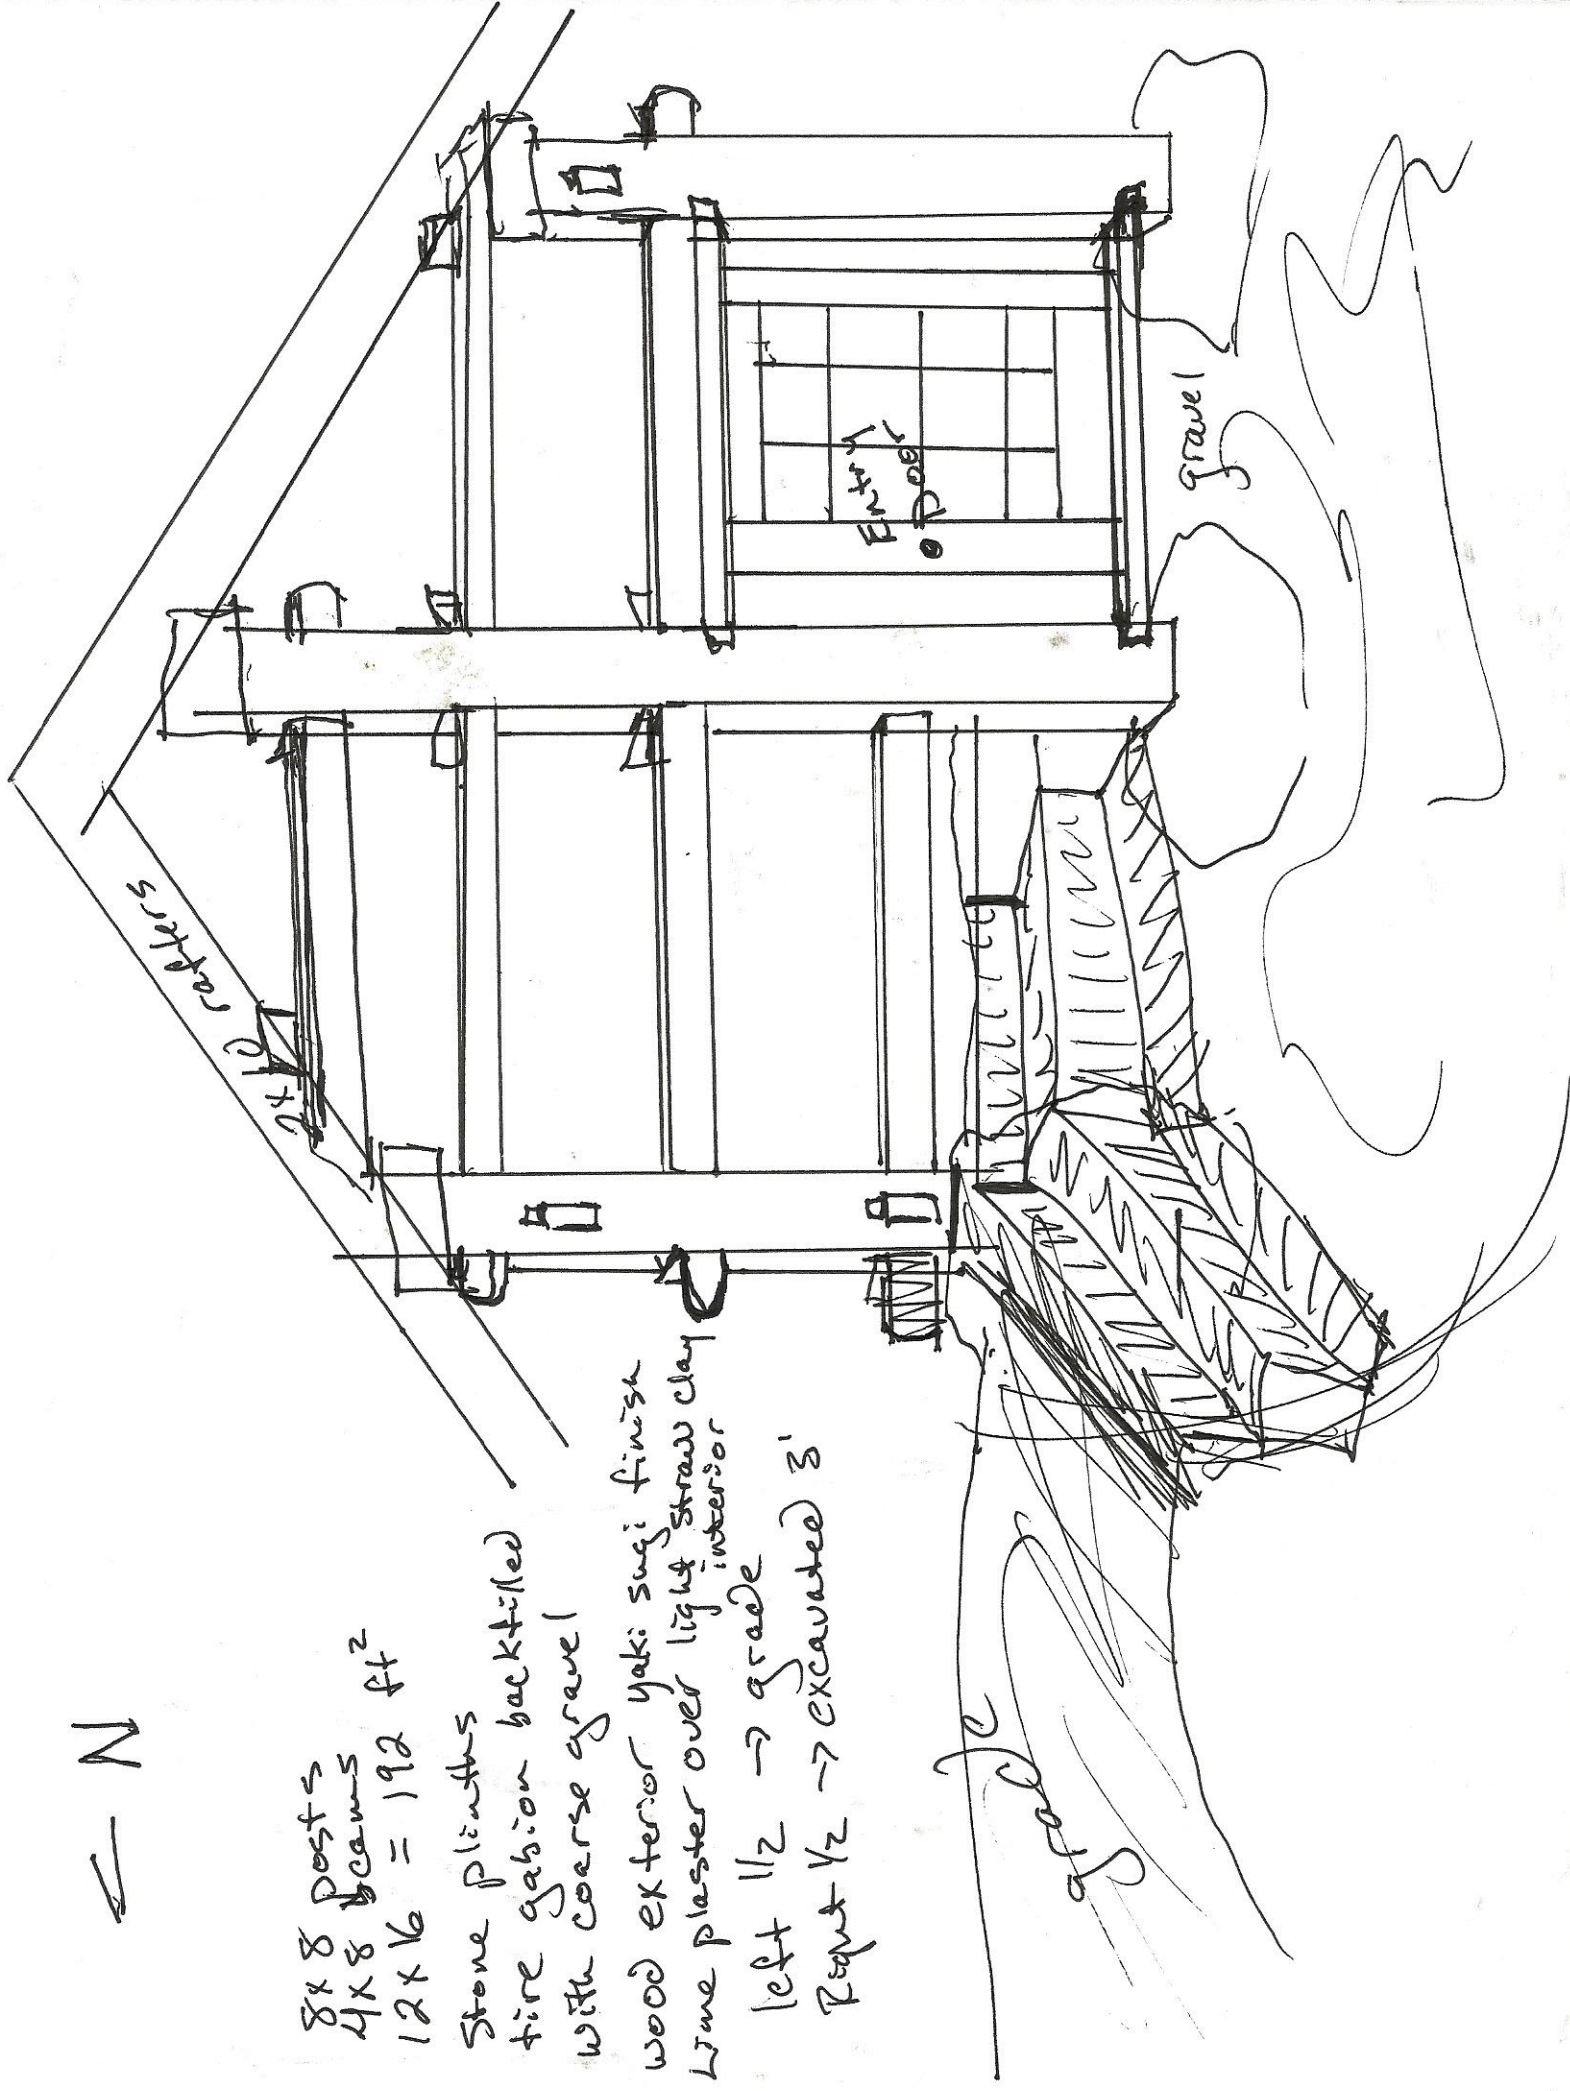 ← N
8x8 posts
4x8 beams
12x16 = 192 ft²
Stone plinths
tire gabion backfilled
with coarse gravel
wood exterior yaki sugi finish
Lime plaster over light straw clay
interior
left 1/2 → grade
Right 1/2 → excavated 3'
2x10 rafters
Entry
Door
gravel
grade